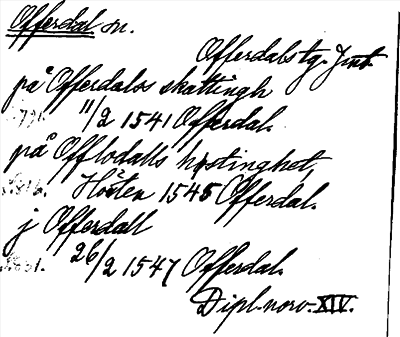 Offerdal sn.
Offerdals tg. Jmt.
på Offerdals skattingh
s. 791. 11/2 1541 Offerdal.
på Offlodalls høstinghet,
s. 816. Hösten 1545 Offerdal.
j Offerdall
s. 831. 26/2 1547 Offerdal.
Dipl. norv. XIV.